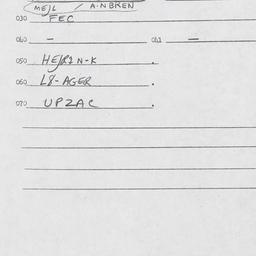 MEJL / A·NBREN
030 FEC
040 – 041 –
050 HEJRIN-K .
060 L8-AGER .
070 UPZAC .